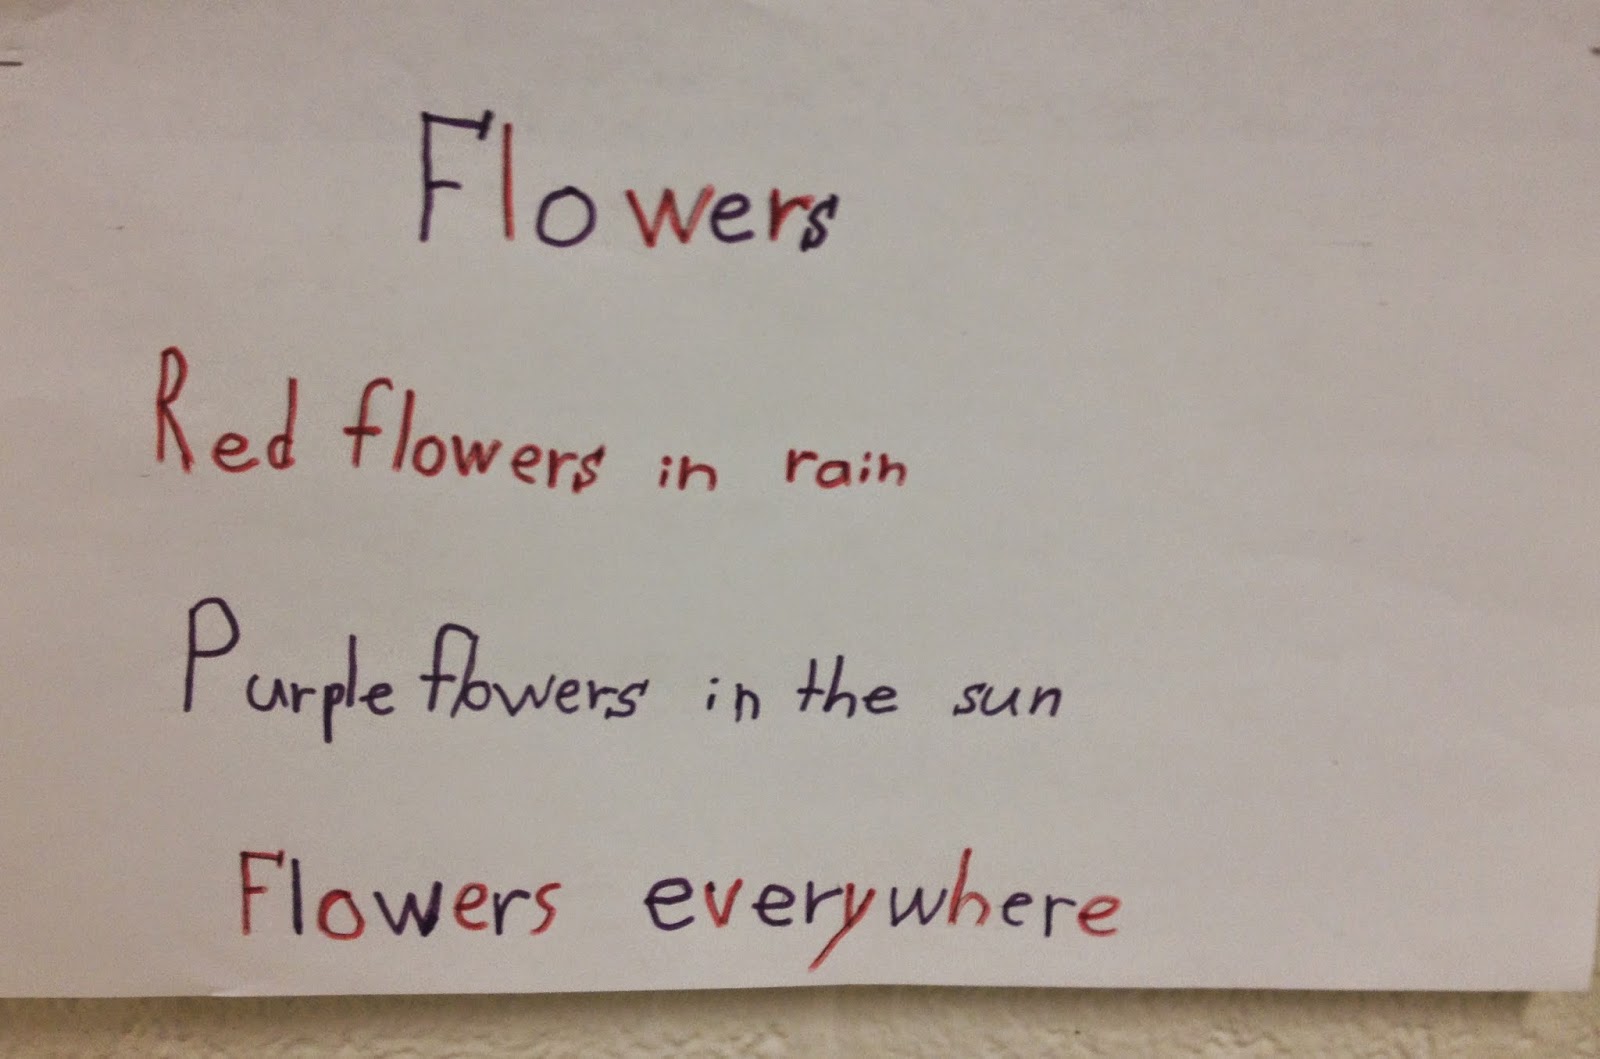 Flowers
Red flowers in rain
Purple flowers in the sun
Flowers everywhere